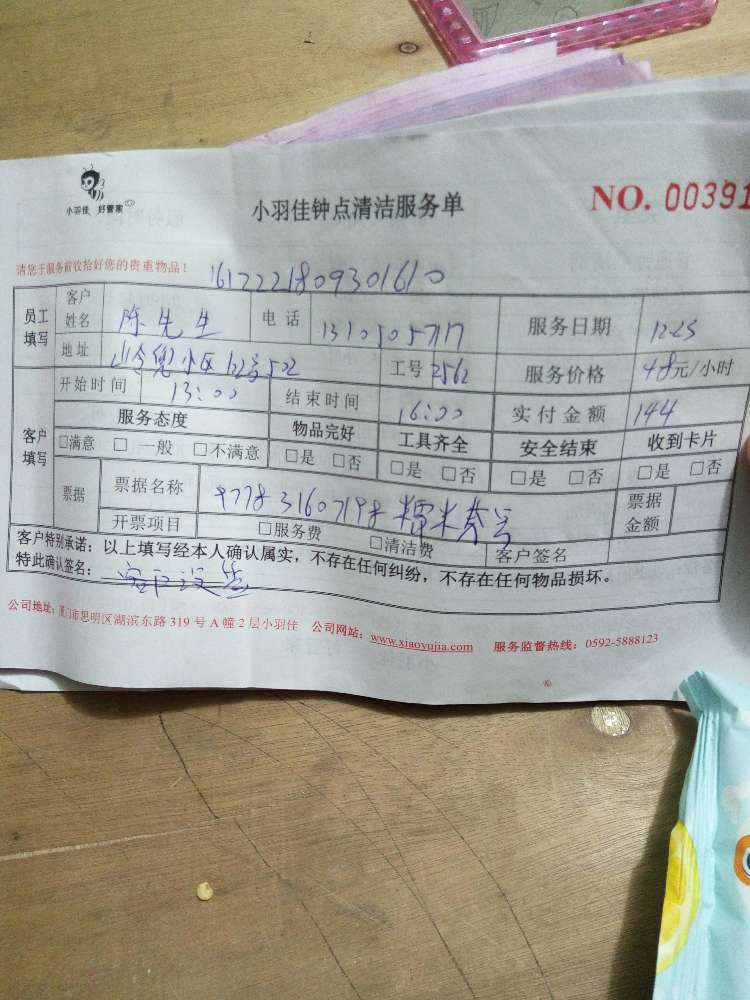 小羽佳 好管家
小羽佳钟点清洁服务单
NO. 00391
请您于服务前收拾好您的贵重物品！
1612221809301610
员工填写 客户姓名 陈先生 电话 13105105717 服务日期 12-25
地址 小区 502 工号 服务价格 48元/小时
客户填写 开始时间 13:00 结束时间 16:00 实付金额 144
服务态度 物品完好 工具齐全 安全结束 收到卡片
□满意 □一般 □不满意 □是 □否 □是 □否 □是 □否 □是 □否
票据 票据名称 977831607198 糯米 票据金额
开票项目 □服务费 □清洁费 客户签名
客户特别承诺：以上填写经本人确认属实，不存在任何纠纷，不存在任何物品损坏。
特此确认签名：客户没签
公司地址：厦门市思明区湖滨东路 319 号 A 幢 2 层小羽佳 公司网站：www.xiaoyujia.com 服务监督热线：0592-5888123